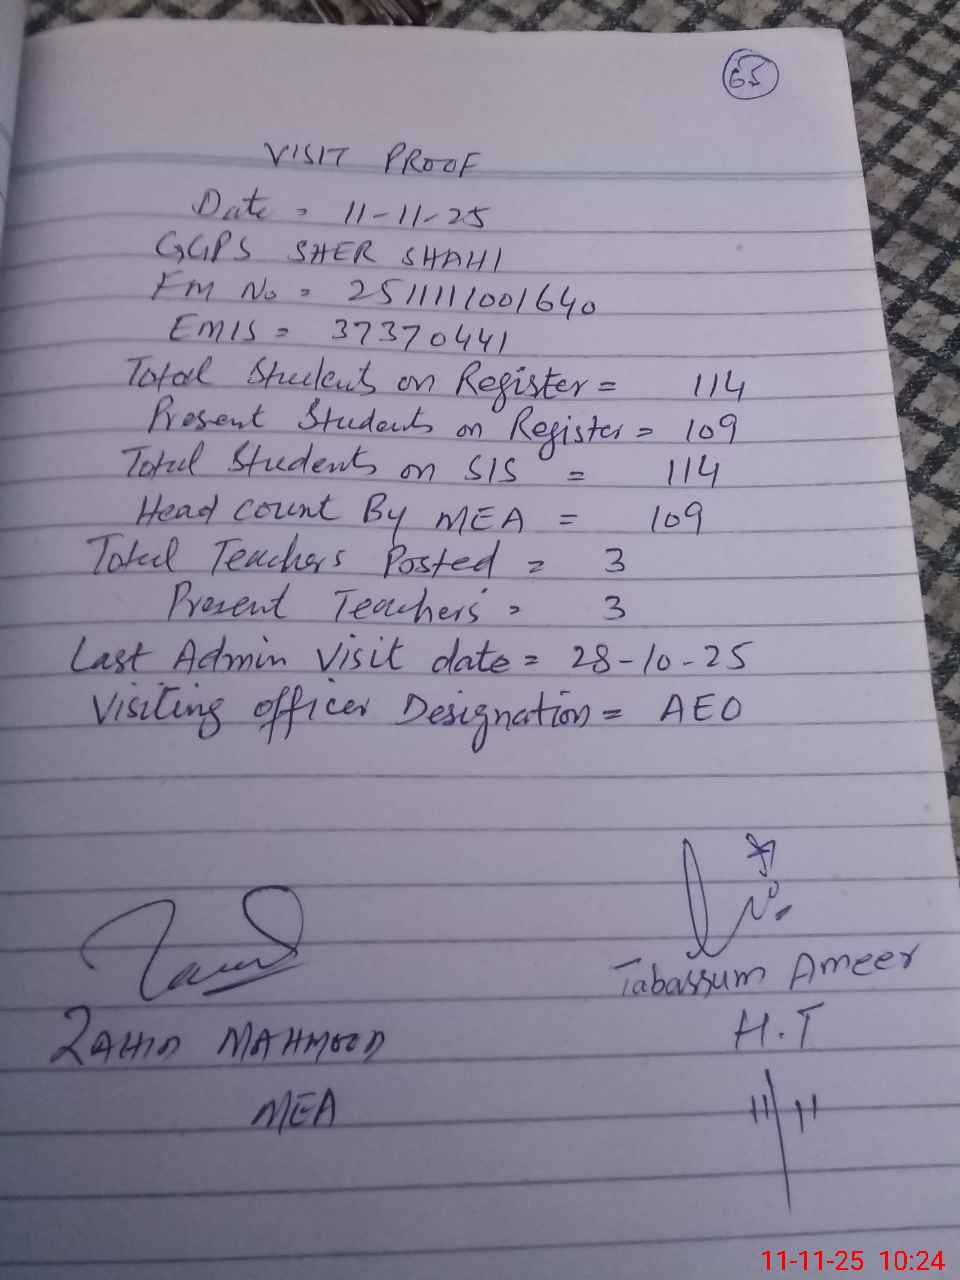 65
VISIT PROOF
Date = 11-11-25
GGPS SHER SHAHI
FM No = 2511111001640
EMIS = 37370441
Total Students on Register = 114
Present Students on Register = 109
Total Students on SIS = 114
Head count By MEA = 109
Total Teachers Posted = 3
Present Teachers = 3
Last Admin Visit date = 28-10-25
Visiting officer Designation = AEO
Tabassum Ameer
ZAHID MAHMOOD
H.T
MEA
11/11
11-11-25 10:24